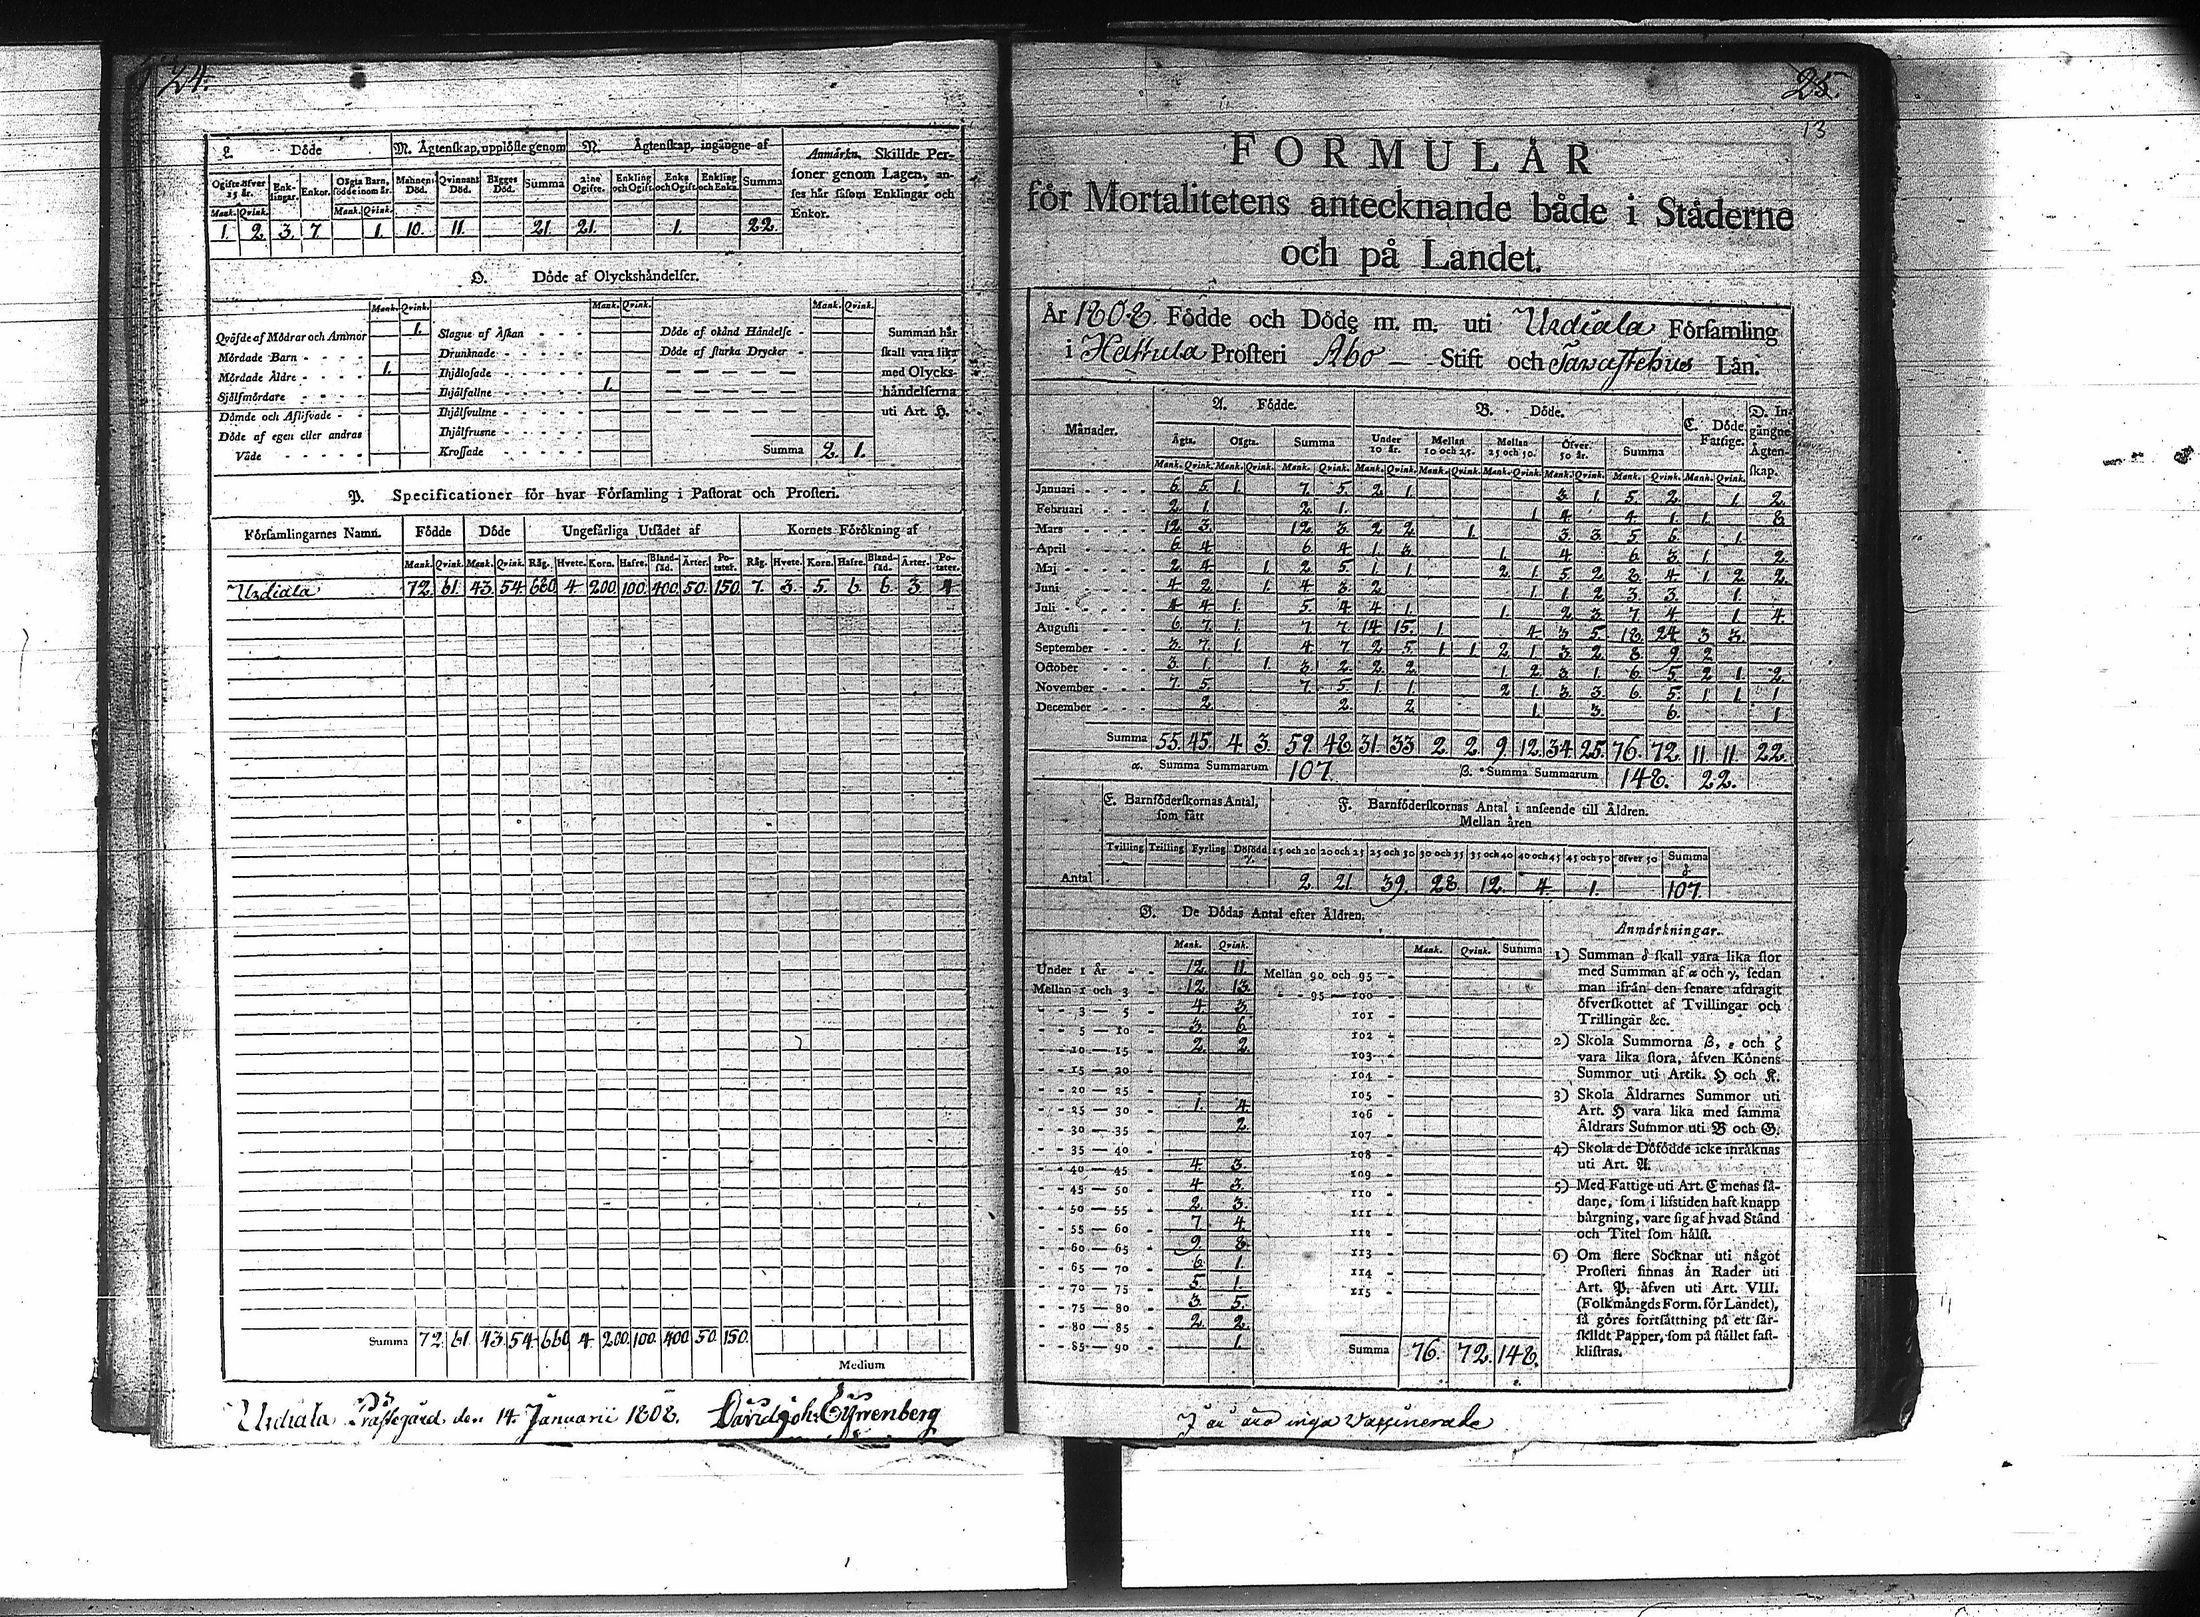 24.
L. Döde
M. Ägtenskap, upplöste genom
N. Ägtenskap, ingångne af
Anmärkn. Skillde Per-
soner genom Lagen, an-
ses här såsom Enklingar och
Enkor.
Ogifte öfver 25 år. Enk-lingar. Enkor. Oägta Barn, födde inom år. Mannens Död. Qvinnans Död. Bägges Död. Summa 2:ne Ogifte. Enkling och Ogift. Enka och Ogift. Enkling och Enka. Summa
Mank. Qvink. Mank. Qvink.
1. 2. 3. 7 1. 10. 11. 21. 21. 1. 22.
O. Döde af Olyckshändelser.
Mank. Qvink. Mank. Qvink. Mank. Qvink.
Qväfde af Mödrar och Ammor 1. Slagne af Åskan Döde af okänd Händelse Summan här
Mördade Barn Drunknade Döde af starka Drycker skall vara lika
Mördade Äldre 1. Ihjälosade med Olycks-
Sjelfmördare Ihjälfallne 1. händelserna
Dömde och Aflifvade Ihjälsvultne uti Art. H.
Döde af egen eller andras Ihjälfrusne
Våde Krossade Summa 2. 1.
P. Specificationer för hvar Församling i Pastorat och Prosteri.
Församlingarnes Namn. Födde Döde Ungefärliga Utsädet af Kornets Förökning af
Mank. Qvink. Mank. Qvink. Råg. Hvete. Korn. Hafre. Bland-säd. Ärter. Po-tater. Råg. Hvete. Korn. Hafre. Bland-säd. Ärter. Po-tater.
Urdiala 72. 61. 43. 54. 660. 4. 200. 100. 400. 50. 150. 7. 3. 5. 6. 6. 3. 4
Summa 72. 61. 43. 54. 660. 4. 200. 100. 400. 50. 150.
Medium
Urdiala Prästegård den 14. Januarii 1808.
25.
13
FORMULÄR
för Mortalitetens antecknande både i Städerne
och på Landet.
År 1808 Födde och Döde m. m. uti Urdiala Församling
i Hattula Prosteri Abo Stift och Tavastehus Län.
Månader. A. Födde. B. Döde. C. Döde Fattige. D. In-gångne Ägten-skap.
Ägta. Oägta. Summa Under 10 år. Mellan 10 och 25. Mellan 25 och 50. Öfver 50 år. Summa
Mank. Qvink. Mank. Qvink. Mank. Qvink. Mank. Qvink. Mank. Qvink. Mank. Qvink. Mank. Qvink. Mank. Qvink. Mank. Qvink.
Januari 6. 5. 1. 7. 5. 2. 1. 3. 1. 5. 2. 1. 2.
Februari 2. 1. 2. 1. 1. 4. 4. 1. 1. 8.
Mars 12. 3. 12. 3. 2. 2. 1. 3. 3. 5. 6. 1.
April 6. 4. 6. 4. 1. 3. 1. 4. 6. 3. 1. 2.
Maj 2. 4. 1. 2. 5. 1. 1. 2. 1. 5. 2. 8. 4. 1. 2. 2.
Juni 4. 2. 1. 4. 3. 2. 1. 1. 2. 3. 3. 1.
Juli 4. 4. 1. 5. 4. 4. 1. 1. 2. 3. 7. 4. 1. 4.
Augusti 6. 7. 1. 7. 7. 14. 15. 1. 4. 3. 5. 18. 24. 3. 3.
September 3. 7. 1. 4. 7. 2. 5. 1. 1. 2. 1. 3. 2. 8. 9. 2.
October 3. 1. 1. 3. 2. 2. 2. 1. 2. 3. 1. 6. 5. 2. 1. 2.
November 7. 5. 7. 5. 1. 1. 2. 1. 3. 3. 6. 5. 1. 1. 1
December 2. 2. 2. 1. 3. 6. 1
Summa 55. 45. 4. 3. 59. 48. 31. 33. 2. 2. 9. 12. 34. 25. 76. 72. 11. 11. 22.
α. Summa Summarum 107. β. Summa Summarum 148. 22.
E. Barnföderskornas Antal, som fått
F. Barnföderskornas Antal i anseende till Åldren.
Mellan åren
Tvilling Trilling Fyrling Dödfödd γ. 15 och 20 20 och 25 25 och 30 30 och 35 35 och 40 40 och 45 45 och 50 öfver 50 Summa δ
Antal 2. 21. 39. 28. 12. 4. 1. 107.
G. De Dödas Antal efter Åldren.
Mank. Qvink. Mank. Qvink. Summa
Under 1 År 12. 11. Mellan 90 och 95
Mellan 1 och 3 12. 13. 95 — 100
3 — 5 4. 3. 101
5 — 10 3. 6. 102
10 — 15 2. 2. 103
15 — 20 104
20 — 25 105
25 — 30 1. 4. 106
30 — 35 2. 107
35 — 40 108
40 — 45 4. 3. 109
45 — 50 4. 3. 110
50 — 55 2. 3. 111
55 — 60 7. 4. 112
60 — 65 9. 8. 113
65 — 70 6. 1. 114
70 — 75 5. 1. 115
75 — 80 3. 5.
80 — 85 2. 2.
85 — 90 1. Summa 76. 72. 148.
Anmärkningar.
1) Summan δ skall vara lika stor
med Summan af α och γ, sedan
man ifrån den senare afdragit
öfverskottet af Tvillingar och
Trillingar &c.
2) Skola Summorna β, ε och ζ
vara lika stora, äfven Könens
Summor uti Artik. H och K.
3) Skola Åldrarnes Summor uti
Art. H vara lika med samma
Åldrars Summor uti B och G.
4) Skola de Döfödde icke inräknas
uti Art. A.
5) Med Fattige uti Art. C menas så-
dane, som i lifstiden haft knapp
bärgning, vare sig af hvad Stånd
och Titel som hälst.
6) Om flere Socknar uti något
Prosteri finnas än Rader uti
Art. P. äfven uti Art. VIII.
(Folkmängds Form. för Landet),
så göres fortsättning på ett sär-
skildt Papper, som på stället fast-
klistras.
I år äro inga Vaccinerade